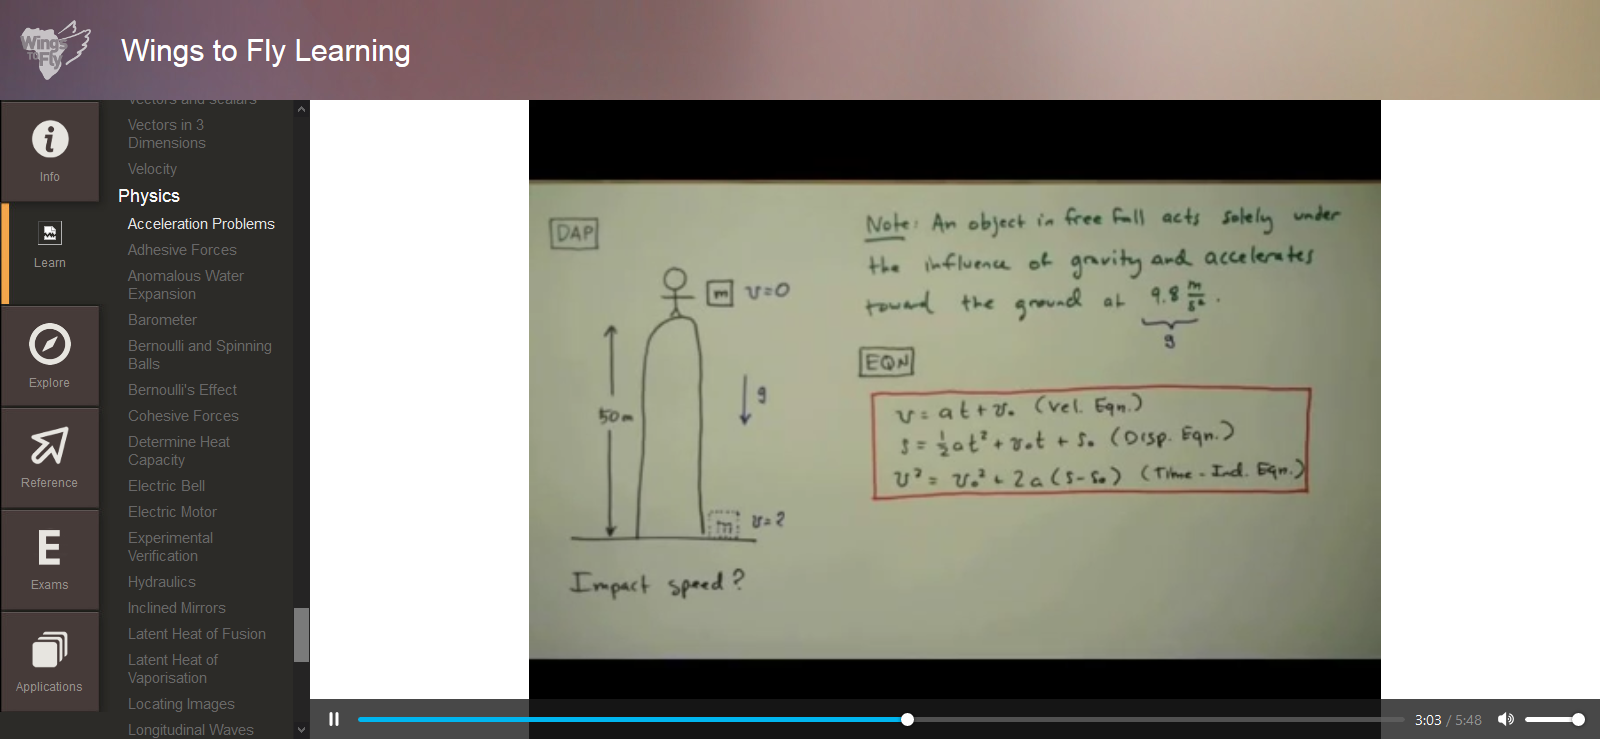 Wings
TO
Fly
Wings to Fly Learning
Info
Learn
Explore
Reference
E
Exams
Applications
Vectors and scalars
Vectors in 3
Dimensions
Velocity
Physics
Acceleration Problems
Adhesive Forces
Anomalous Water
Expansion
Barometer
Bernoulli and Spinning
Balls
Bernoulli's Effect
Cohesive Forces
Determine Heat
Capacity
Electric Bell
Electric Motor
Experimental
Verification
Hydraulics
Inclined Mirrors
Latent Heat of Fusion
Latent Heat of
Vaporisation
Locating Images
Longitudinal Waves
DAP
m v=0
50m
g
m v=?
Impact speed?
Note: An object in free fall acts solely under
the influence of gravity and accelerates
toward the ground at 9.8 m/s².
g
EQN
v = at + v₀ (Vel. Eqn.)
s = ½at² + v₀t + s₀ (Disp. Eqn.)
v² = v₀² + 2a(s-s₀) (Time-Ind. Eqn.)
3:03 / 5:48